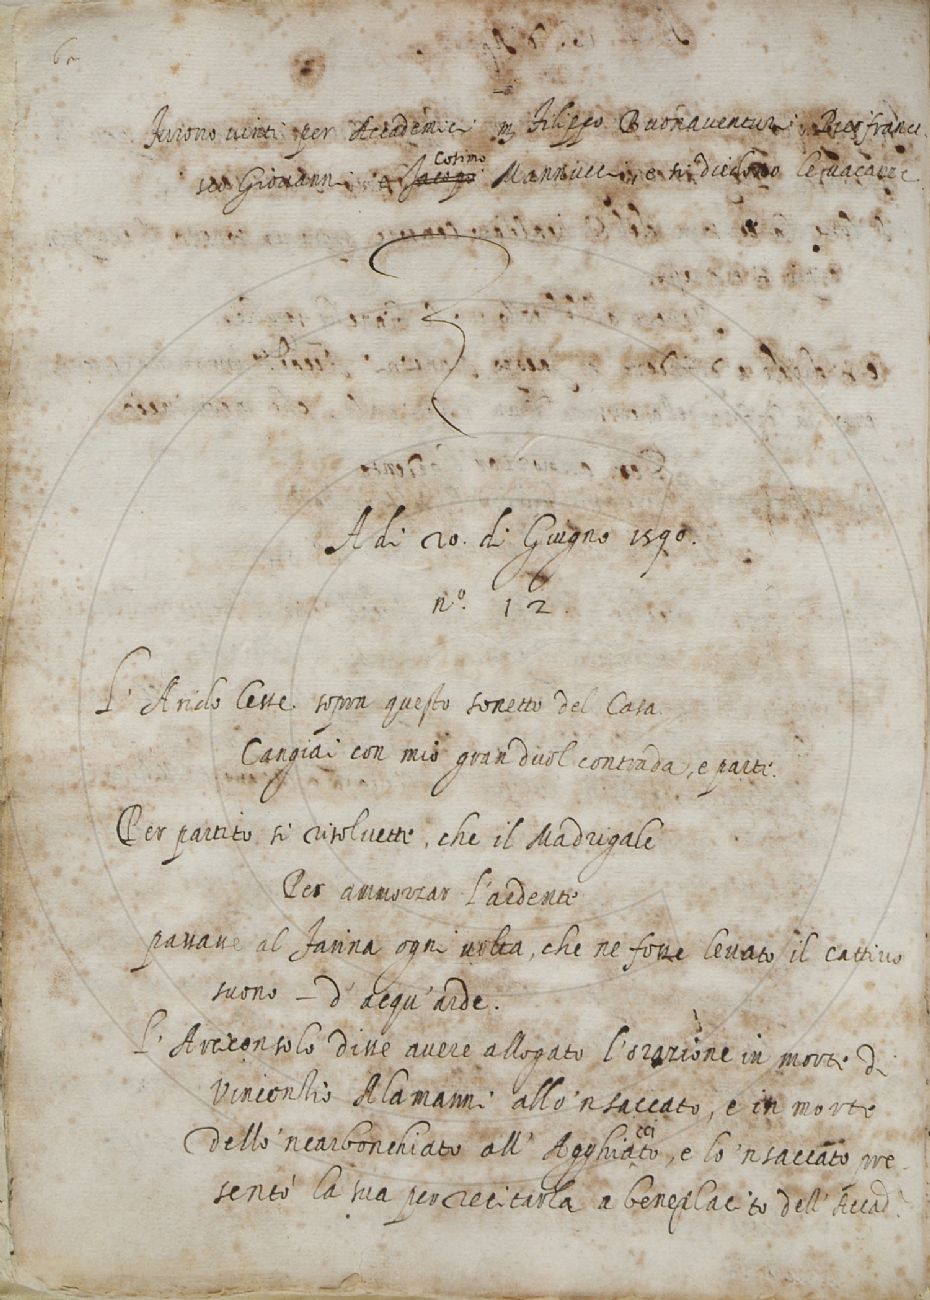 60
Furono uinti per Accademici m Filippo Buonauenturi, Pierfrance
sco Giouanni, e Jacopo Cosimo Mannucci, e si diedono le uacanze
A di 20. di Giugno 1590.
n.º 12.
L'Arido lesse sopra questo sonetto del Casa.
Cangiai con mio gran duol contrada, e parte.
Per partito si risoluette, che il Madrigale
Per ammorzar l'ardente
passasse al Farina ogni uolta, che ne fosse leuato il cattiuo
suono – d'acqu'arde.
L'Arciconsolo disse auere allogato l'orazione in morte di
Vincenthio Alamanni allo 'nsaccato, e in morte
dello 'ncarbonchiato all' Agghiacciato, e lo 'nsaccato pre-
sentò la sua per recitarla a beneplacito dell' Accad.